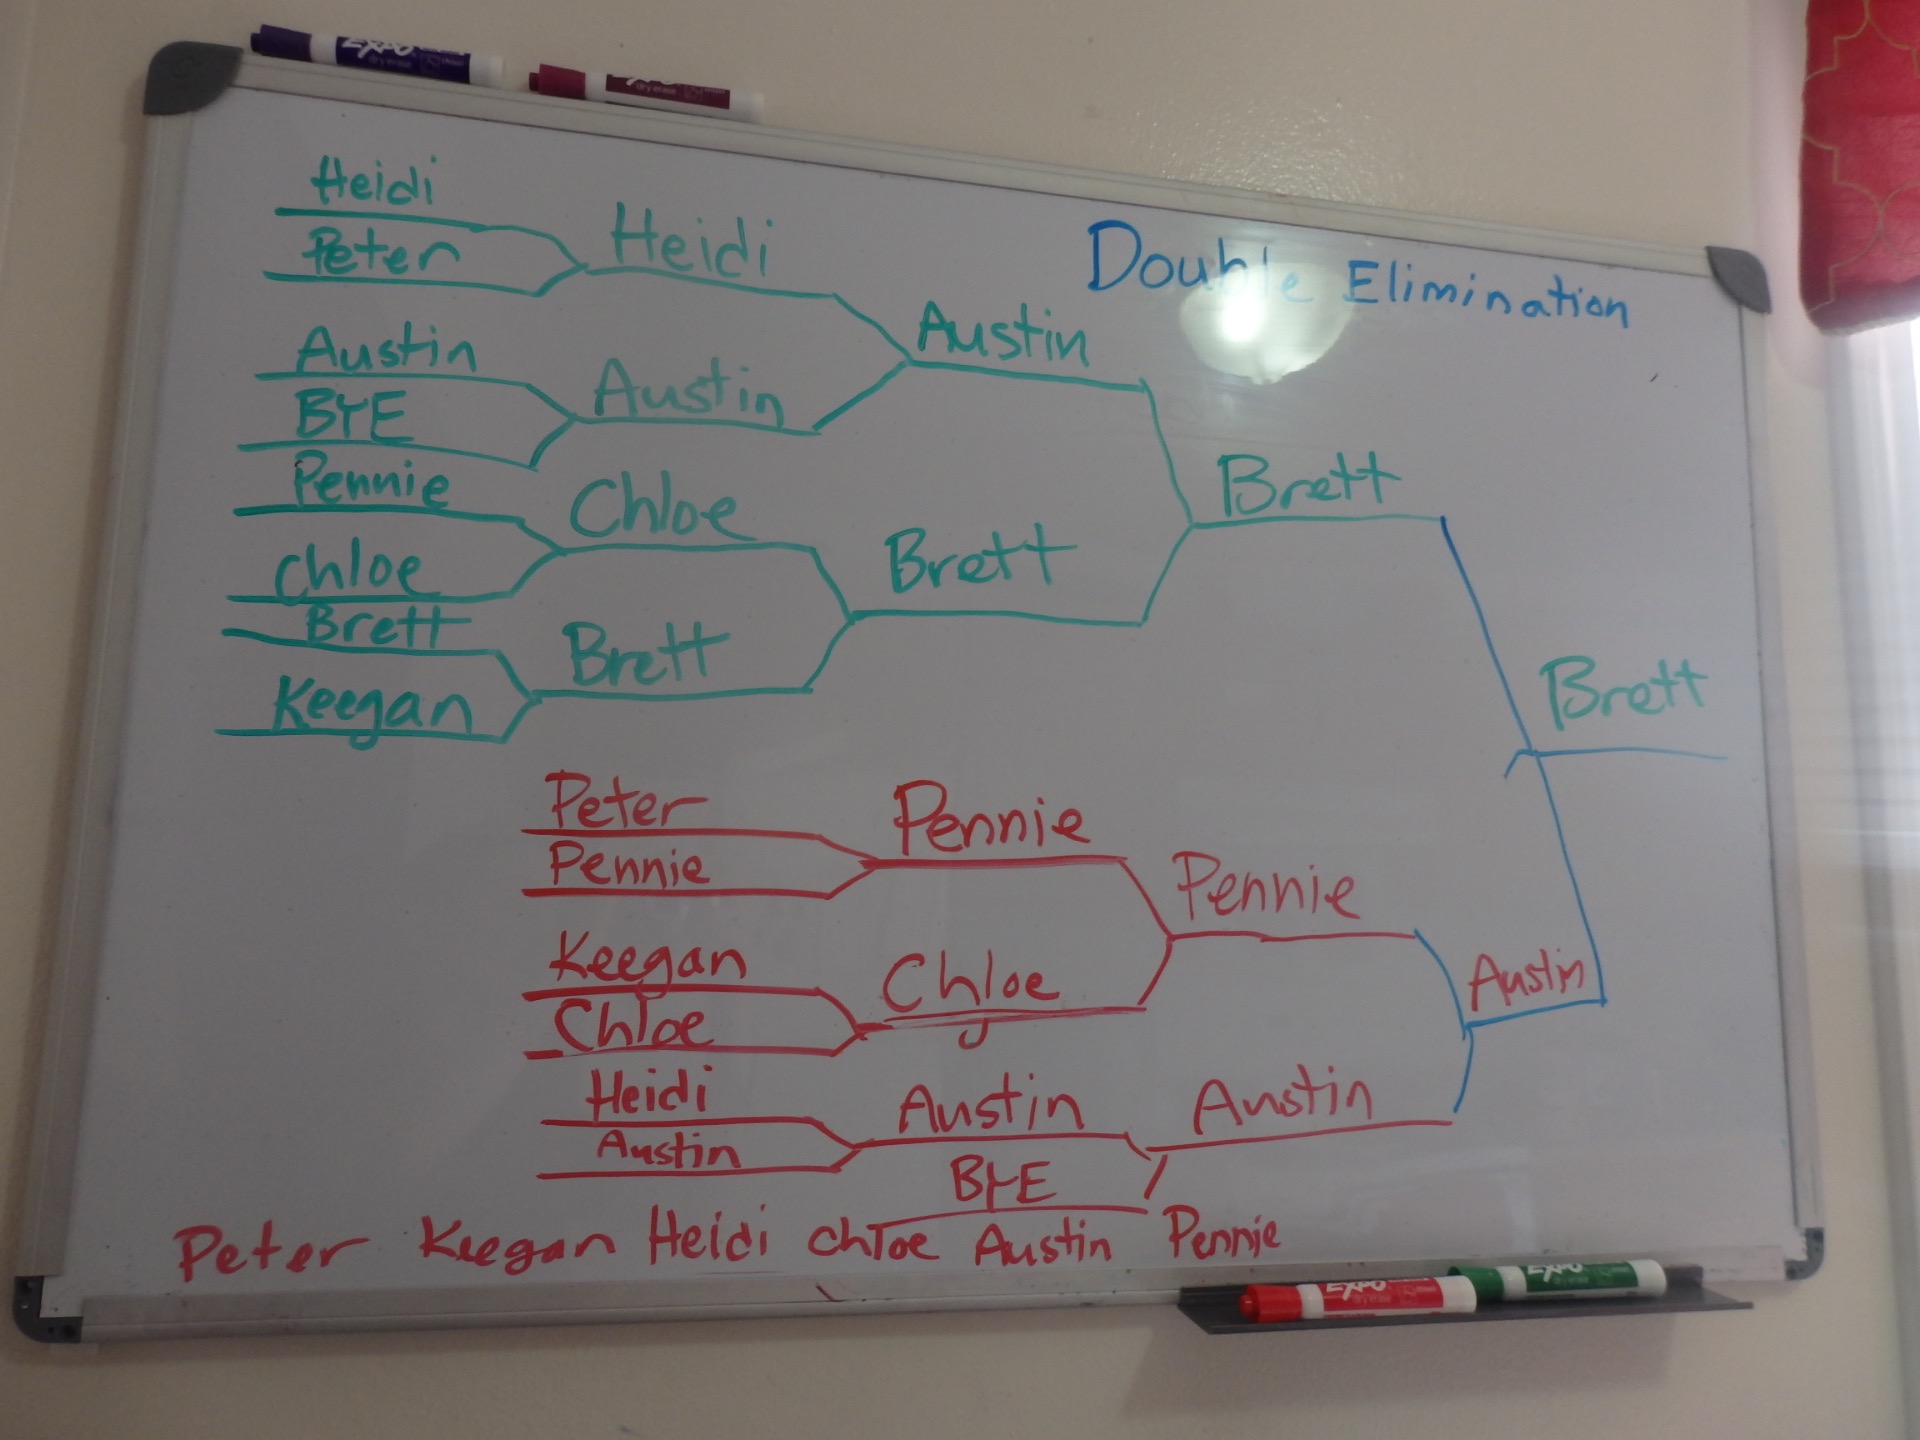 EXPO
dry erase
EXPO
dry erase
Double Elimination
Heidi
Peter
Austin
BYE
Pennie
Chloe
Brett
Keegan
Heidi
Austin
Chloe
Brett
Austin
Brett
Brett
Brett
Peter
Pennie
Keegan
Chloe
Heidi
Austin
Pennie
Chloe
Austin
BYE
Pennie
Austin
Austin
Peter Keegan Heidi Chloe Austin Pennie
EXPO
dry erase
EXPO
dry erase